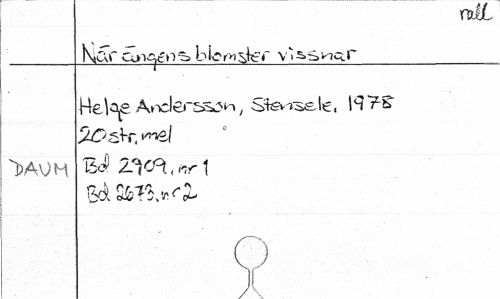 rall
När ängens blomster vissnar
Helge Andersson, Stensele, 1978
20 str, mel
DAUM Bd 2909, nr 1
Bd 2673, nr 2